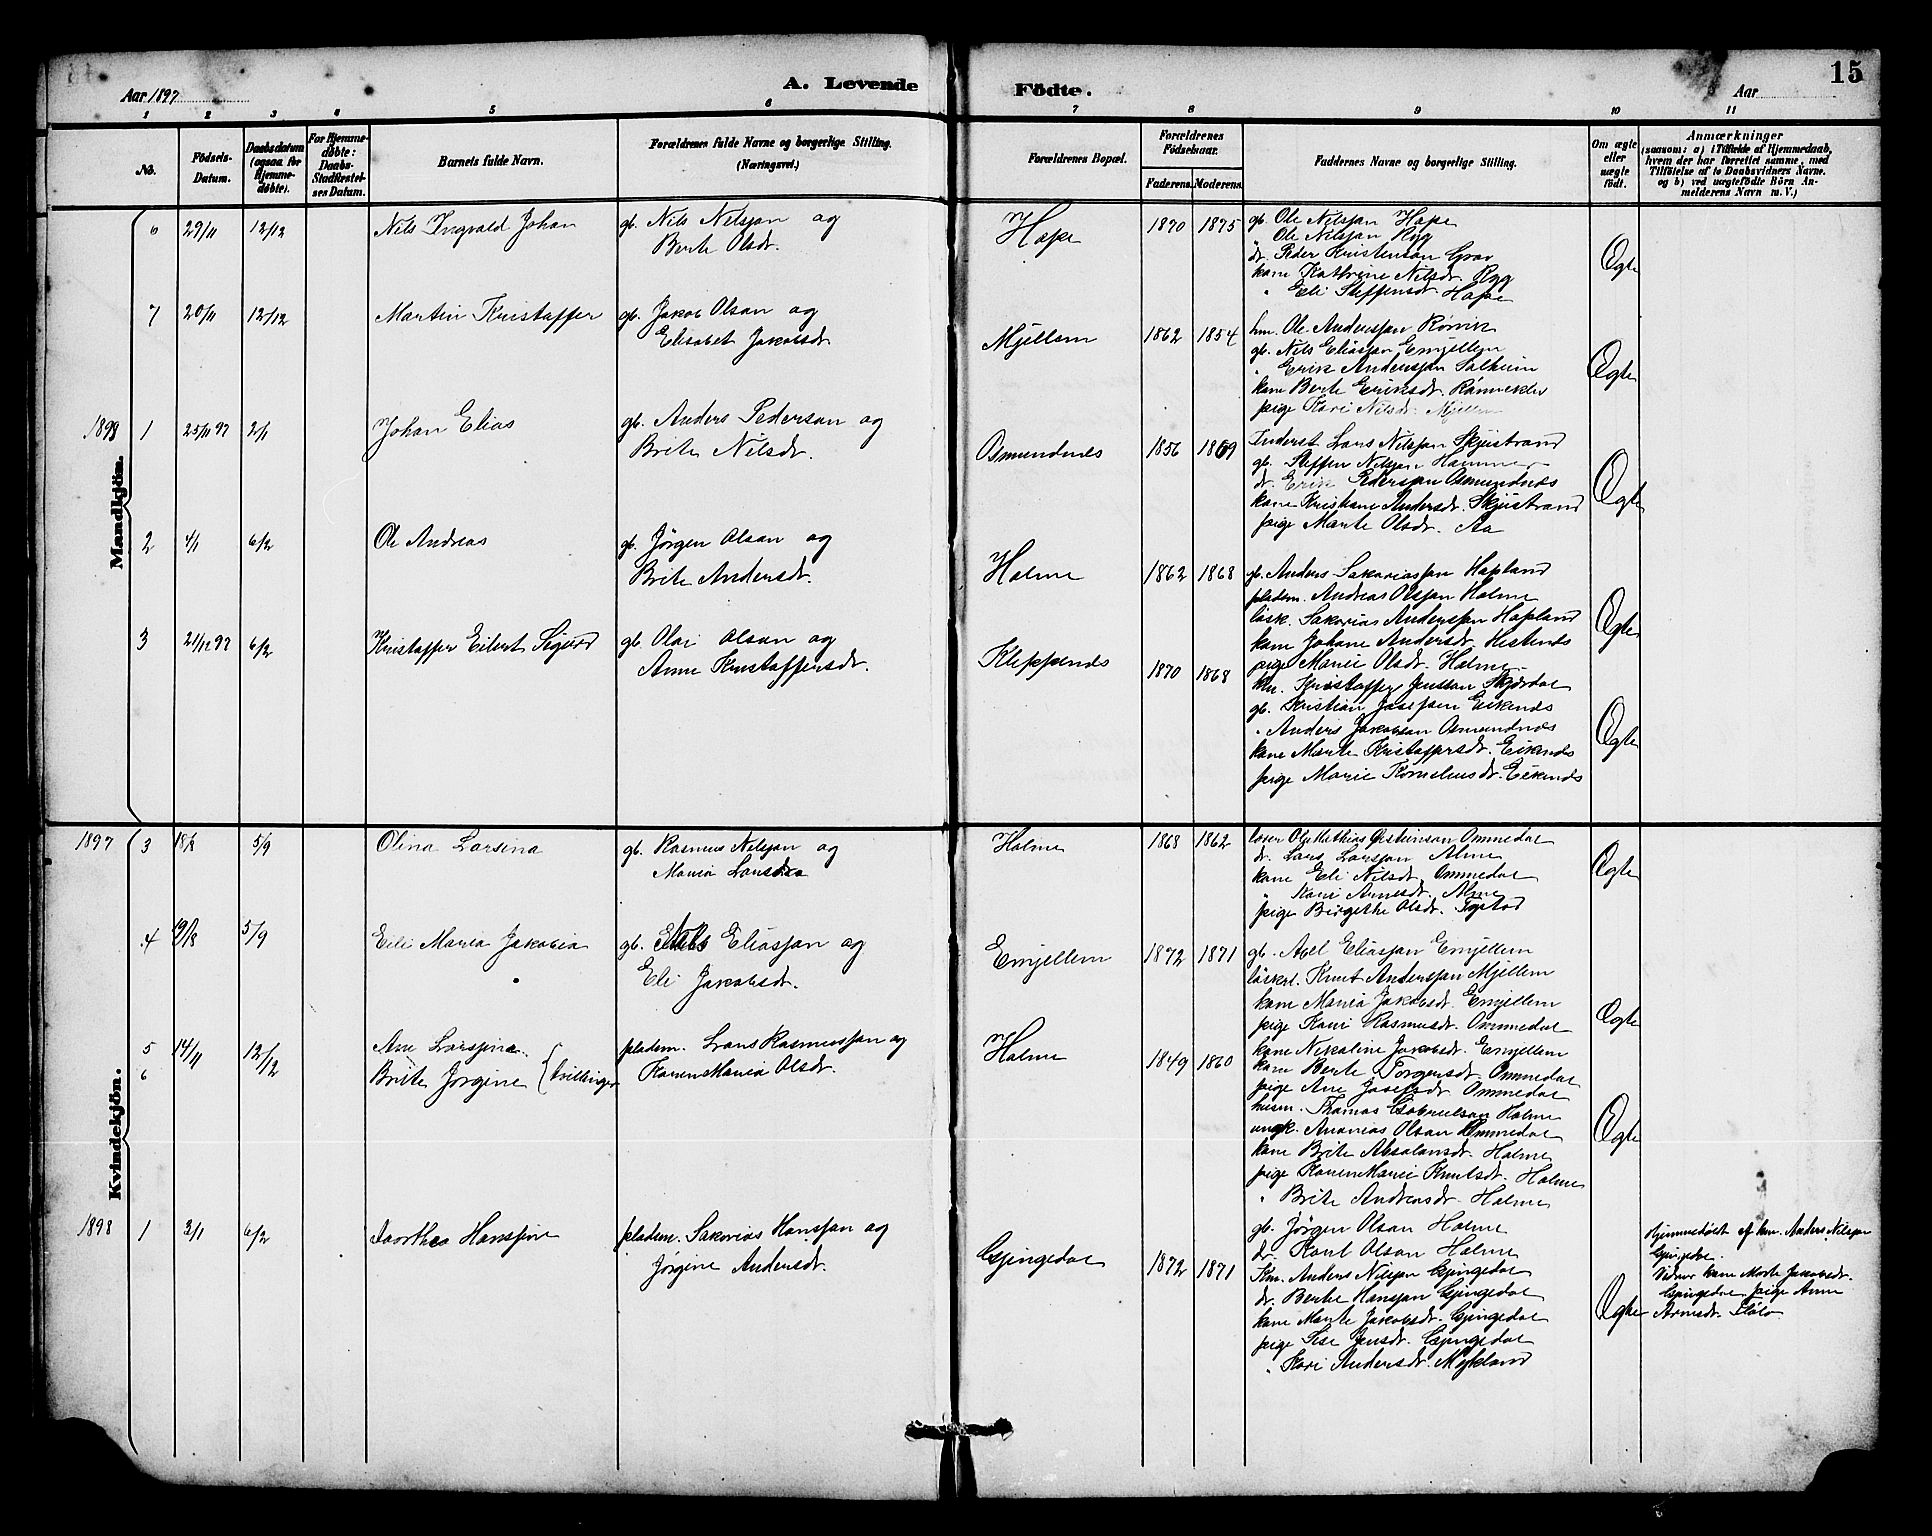 Aar 1897
A. Levende Födte.
15
Aar
1 2 3 4 5 6 7 8 9 10 11
No.
Födsels-Datum.
Daabsdatum (ogsaa for Hjemmedöbte).
For Hjemmedöbte: Daabs-Stadfæstelses Datum.
Barnets fulde Navn.
Forældrenes fulde Navne og borgerlige Stilling. (Næringsvei.)
Forældrenes Bopæl.
Forældrenes Födselsaar.
Faderens. Moderens.
Faddernes Navne og borgerlige Stilling.
Om ægte eller uægte födt.
Anmærkninger
(saasom: a) i Tilfælde af Hjemmedaab, hvem der har forrettet samme, med Tilföielse af to Daabsvidners Navne, og b) ved uægtefödte Börn Anmelderens Navn m. V.)
Mandkjön.
6 29/11 12/12 Nils Ingvald Johan gb. Nils Nilsson og
Berte Olsdr.
Hope 1870 1875 gb. Ole Nilsson Hope
Ole Nilsson Ryg
dr. Peder Kristenson Grov
kone Kathrine Nilsdr. Ryg
" Eli Steffensdr. Hope
Ægte
7 20/11 12/12 Martin Kristoffer gb. Jakob Olson og
Elisabet Jakobsdr
Mjellem 1862 1854 hm. Ole Andersson Rönvik
gb. Nils Eliasson Emjellem
" Erik Andersson Solheim
kone Berte Eriksdr. Rönneklev
pige Kari Nilsdr. Mjellem
Ægte
1898 1 25/11 97 2/1 Johan Elias gb. Anders Pederson og
Brite Nilsdr.
Osmundnes 1856 1869 Inderst Lars Nilsson Skjustrand
gb. Steffen Nilsson Hammer
dr. Erik Pedersson Osmundnes
kone Kristiane Andersdr. Skjustrand
pige Marte Olsdr. Aa
Ægte
2 4/1 6/2 Ole Andreas gb. Jørgen Olson og
Brite Andersdr.
Holme 1862 1868 gb. Anders Sakariasson Hopland
pladsm. Andreas Olsson Holme
løsk. Sakarias Andersson Hopland
kone Johane Andersdr. Hestenes
pige Marie Olsdr. Holme
Ægte
3 21/12 97 6/2 Kristoffer Eilert Sigurd gb. Olai Olson og
Anne Kristoffersdr.
Kleppenes 1870 1868 km. Kristoffer Jensson Skjærdal
gb. Kristian Josefsen Eikenes
" Anders Jakobson Osmundnes
kone Marte Kristoffersdr. Eikenes
pige Marie Korneliusdr. Eikenes
Ægte
Kvindekjön.
1897 3 18/8 5/9 Olina Larsina gb. Rasmus Nilsson og
Maria Larsdr
Holme 1868 1862 lærer Ole Mathias Øisteinson Ommedal
dr. Lars Larsson Alme
kone Eli Nilsdr. Ommedal
" Kari Arnesdr. Alme
pige Birgethe Olsdr. Tystad
Ægte
4 19/8 5/9 Eli Maria Jakobia gb. Nils Eliasson og
Eli Jakobsdr.
Emjellem 1872 1871 gb. Axel Eliasson Emjellem
løskrl. Knut Andersson Mjellem
kone Maria Jakobsdr. Emjellem
pige Kari Rasmusdr. Ommedal
kone Nikoline Jakobsdr. Emjellem
Ægte
5 14/11 12/12 Ane Larsine
6 Brite Jørgine (tvillinger
pladsm. Lars Rasmusson og
Karen Maria Olsdr.
Holme 1849 1860 kone Berte Torgersdr. Ommedal
pige Ane Josefsdr Ommedal
husm. Thomas Gabrielson Holme
ungk. Ananias Olson Ommedal
kone Brite Absalonsdr. Holme
pige Karen Marie Knutsdr. Holme
" Brite Andreasdr. Holme
Ægte
1898 1 3/1 6/2 Dorthea Hansine pladsm. Sakarias Hansson og
Jørgine Andersdr.
Gjengedal 1872 1871 gb. Jørgen Olson Holme
dr. Karl Olson Holme
Km. Anders Nilsson Gjengedal
dr. Berthe Hansson Gjengedal
kone Marte Jakobsdr. Gjengedal
pige Sise Jensdr. Gjengedal
" Kari Andersdr. Mykland
Ægte
Hjemmedøbt af km. Anders Nilsson
Gjengedal.
Vidner kone Marte Jakobsdr.
Gjengedal pige Anne
Arnesdr.